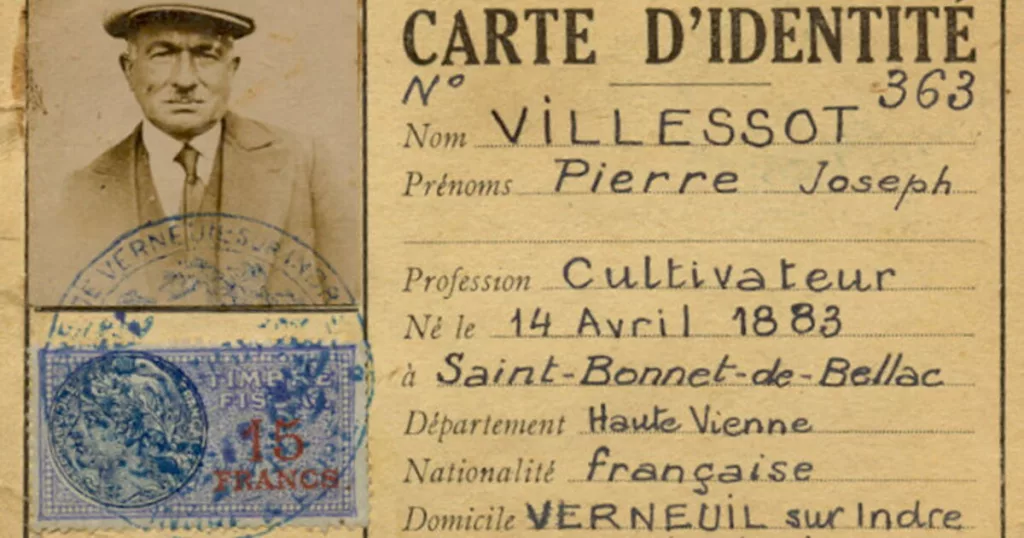 CARTE D'IDENTITÉ
N° 363
Nom VILLESSOT
Prénoms Pierre Joseph
Profession Cultivateur
Né le 14 Avril 1883
à Saint-Bonnet-de-Bellac
Département Haute Vienne
Nationalité française
Domicile VERNEUIL sur Indre
VERNEUIL-SUR-INDRE
TIMBRE
FISCAL
15
FRANCS